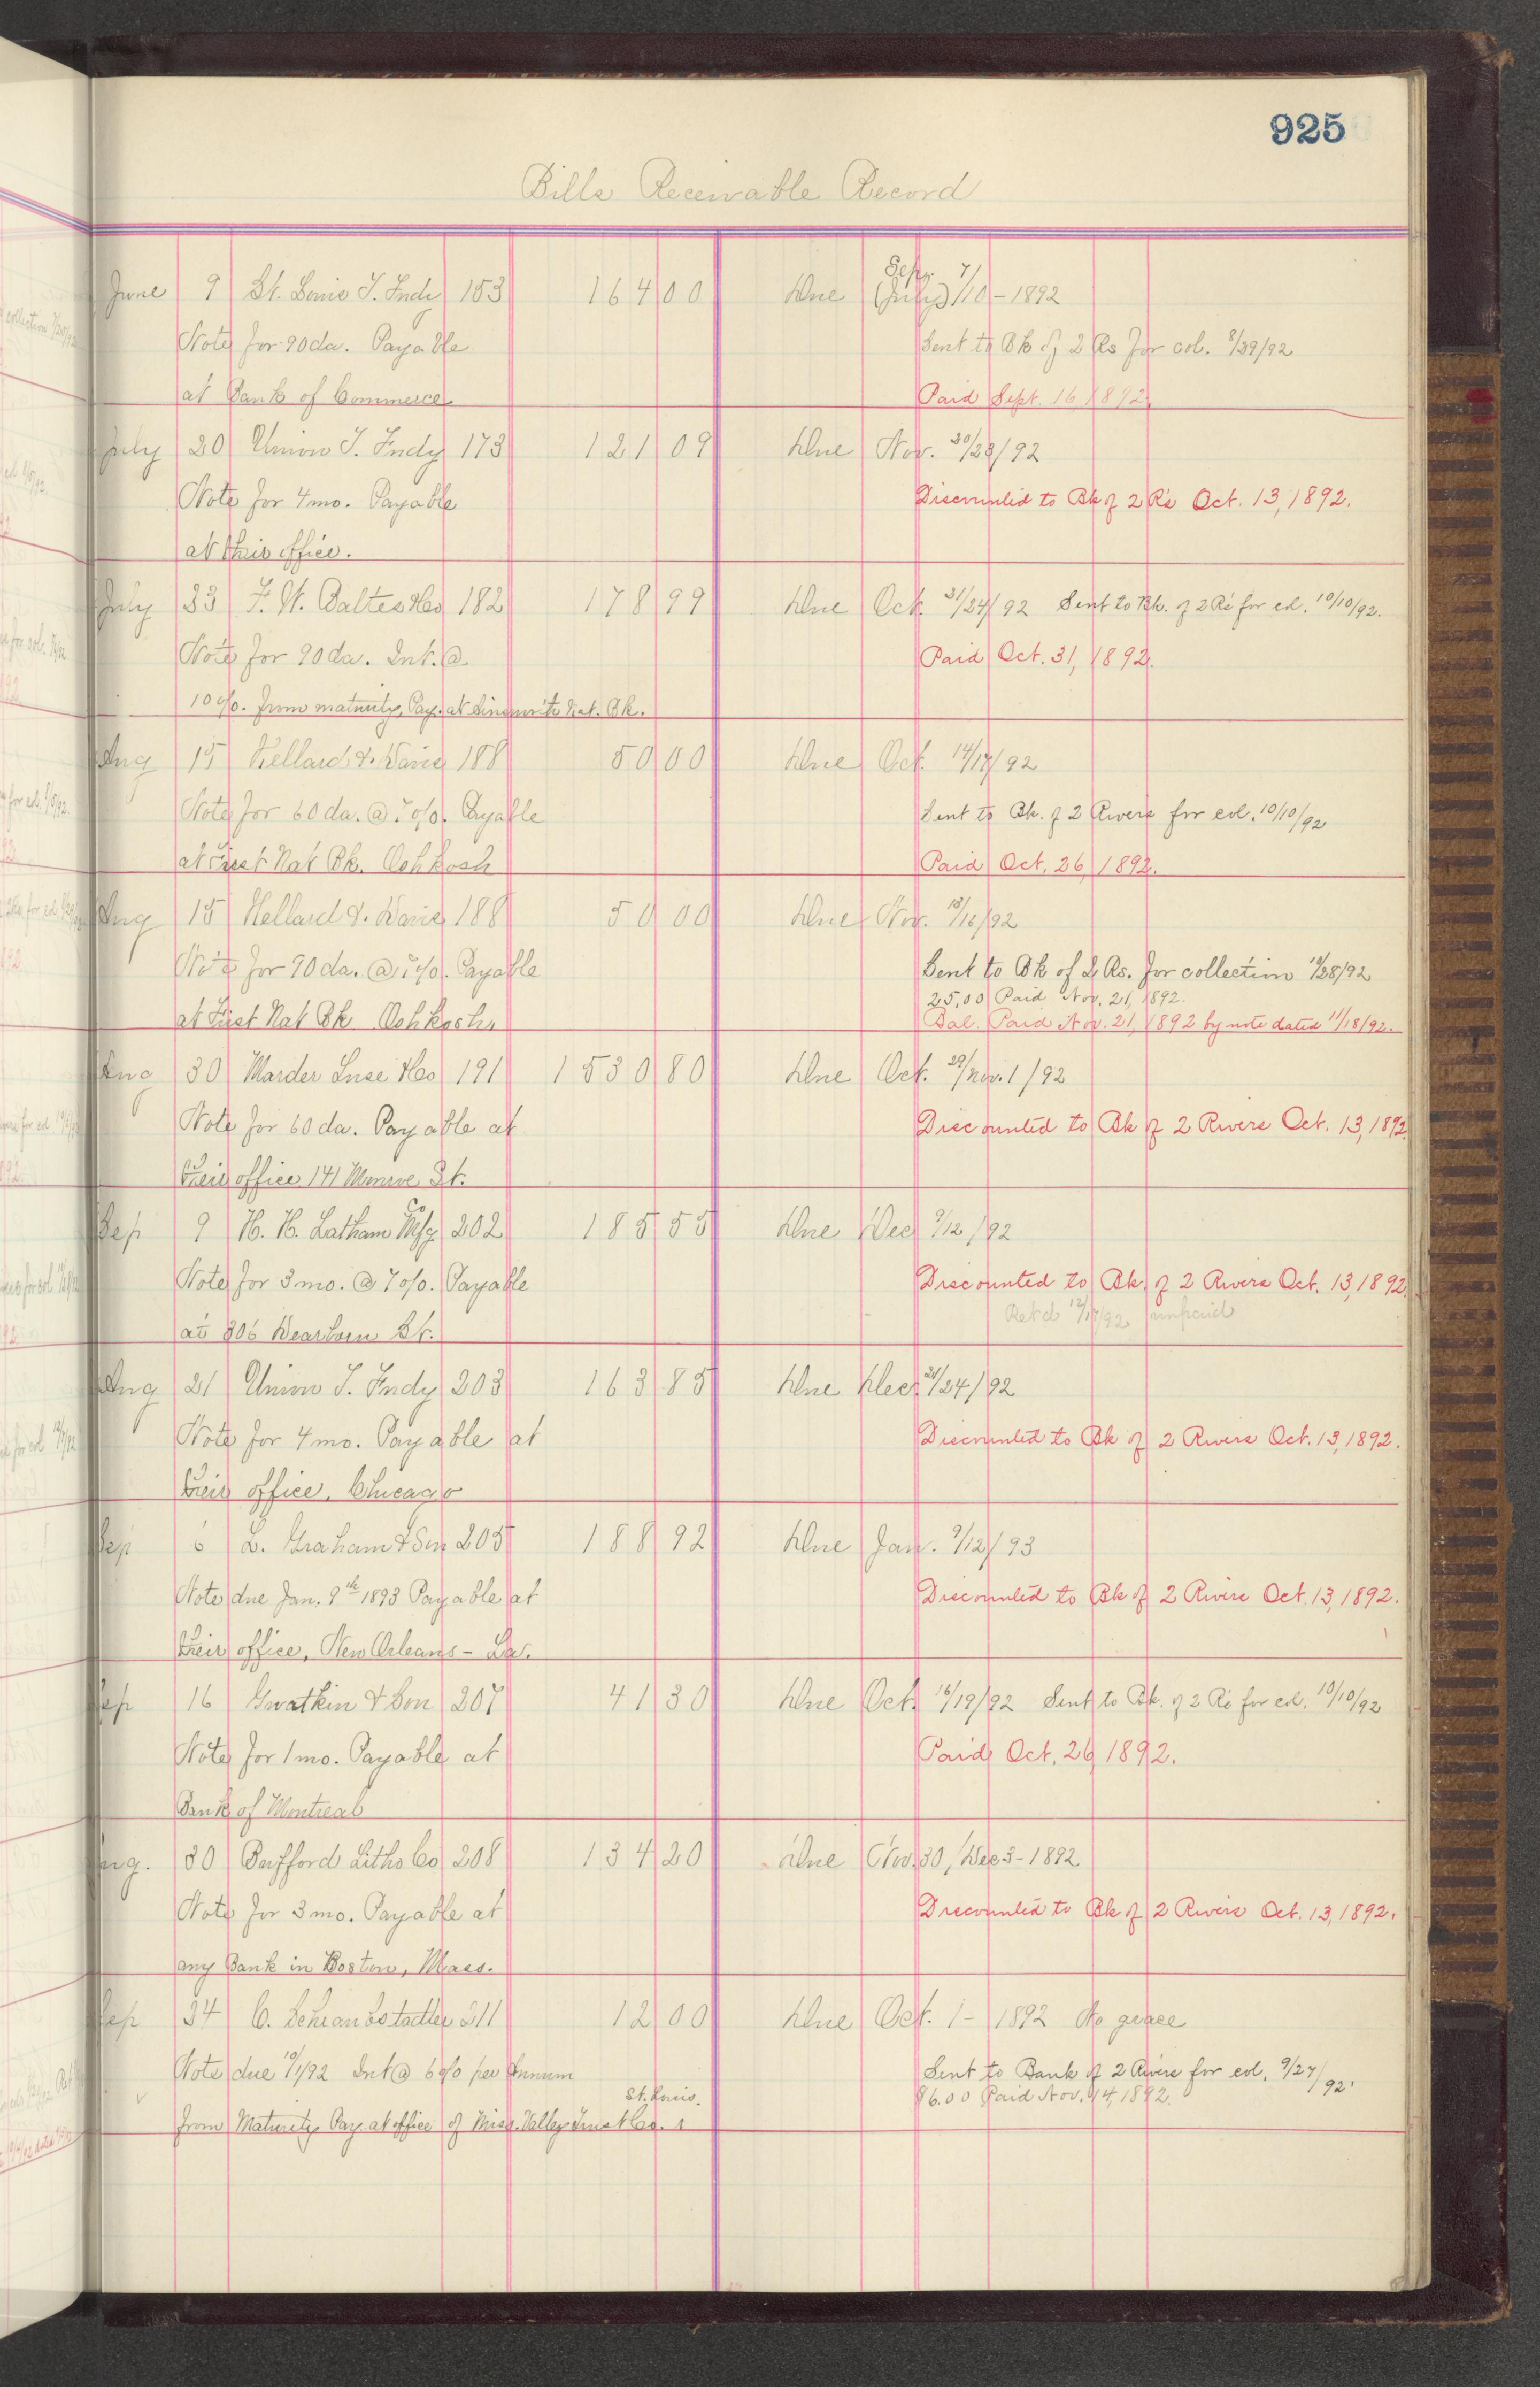 925
Bills Receivable Record
June 9 St. Louis T. Fndy 153 164 00 Due Sep. 7/ (July) /10 - 1892
Note for 90 da. Payable Sent to Bk of 2 Rs for col. 8/29/92
at Bank of Commerce Paid Sept. 16 1892.
July 20 Union T. Fndy 173 121 09 Due Nov. 20/23/92
Note for 4 mo. Payable Discounted to Bk of 2 R's Oct. 13, 1892.
at their office.
July 23 F. W. Baltes & Co 182 178 99 Due Oct. 21/24/92 Sent to Bk. of 2 R's for col. 10/10/92.
Note for 90 da. Int. @ Paid Oct. 31, 1892.
10%. from maturity, Pay. at Nat. Bk.
Aug 15 Hellard & Davis 188 50 00 Due Oct. 14/17/92
Note for 60 da. @ 7%. Payable Sent to Bk. of 2 Rivers for col. 10/10/92
at First Nat Bk. Oshkosh Paid Oct. 26, 1892.
Aug 15 Hellard & Davis 188 50 00 Due Nov. 13/16/92
Note for 90 da. @ 7%. Payable Sent to Bk of 2 Rs. for collection 10/28/92
25.00 Paid Nov. 21, 1892.
at First Nat Bk Oshkosh Bal. Paid Nov. 21, 1892 by note dated 11/18/92.
Aug 30 Marder Luse & Co 191 1530 80 Due Oct. 29/Nov. 1/92
Note for 60 da. Payable at Discounted to Bk of 2 Rivers Oct. 13, 1892.
their office 141 Monroe St.
Sep 9 H. H. Latham Mfg Co 202 185 55 Due Dec 9/12/92
Note for 3 mo. @ 7%. Payable Discounted to Bk. of 2 Rivers Oct. 13, 1892.
Retd 12/17/92 unpaid
at 306 Dearborn St.
Aug 21 Union T. Fndy 203 163 85 Due Dec. 21/24/92
Note for 4 mo. Payable at Discounted to Bk of 2 Rivers Oct. 13, 1892.
their office, Chicago
Sep 6 L. Graham & Son 205 188 92 Due Jan. 9/12/93
Note due Jan. 9th 1893 Payable at Discounted to Bk of 2 Rivers Oct. 13, 1892.
their office, New Orleans - La.
Sep 16 Gwatkin & Son 207 41 30 Due Oct. 16/19/92 Sent to Bk. of 2 R's for col. 10/10/92
Note for 1 mo. Payable at Paid Oct. 26, 1892.
Bank of Montreal
Aug. 30 Bufford Litho Co 208 134 20 Due Nov. 30/Dec 3 - 1892
Note for 3 mo. Payable at Discounted to Bk of 2 Rivers Oct. 13, 1892.
any Bank in Boston, Mass.
Sep 24 C. Schraubstadter 211 12 00 Due Oct. 1 - 1892 No grace
Note due 10/1/92 Int @ 6% per Annum Sent to Bank of 2 Rivers for col. 9/27/92.
St. Louis. $6.00 Paid Nov. 14, 1892.
from Maturity Pay. at office of Miss. Valley Trust Co.